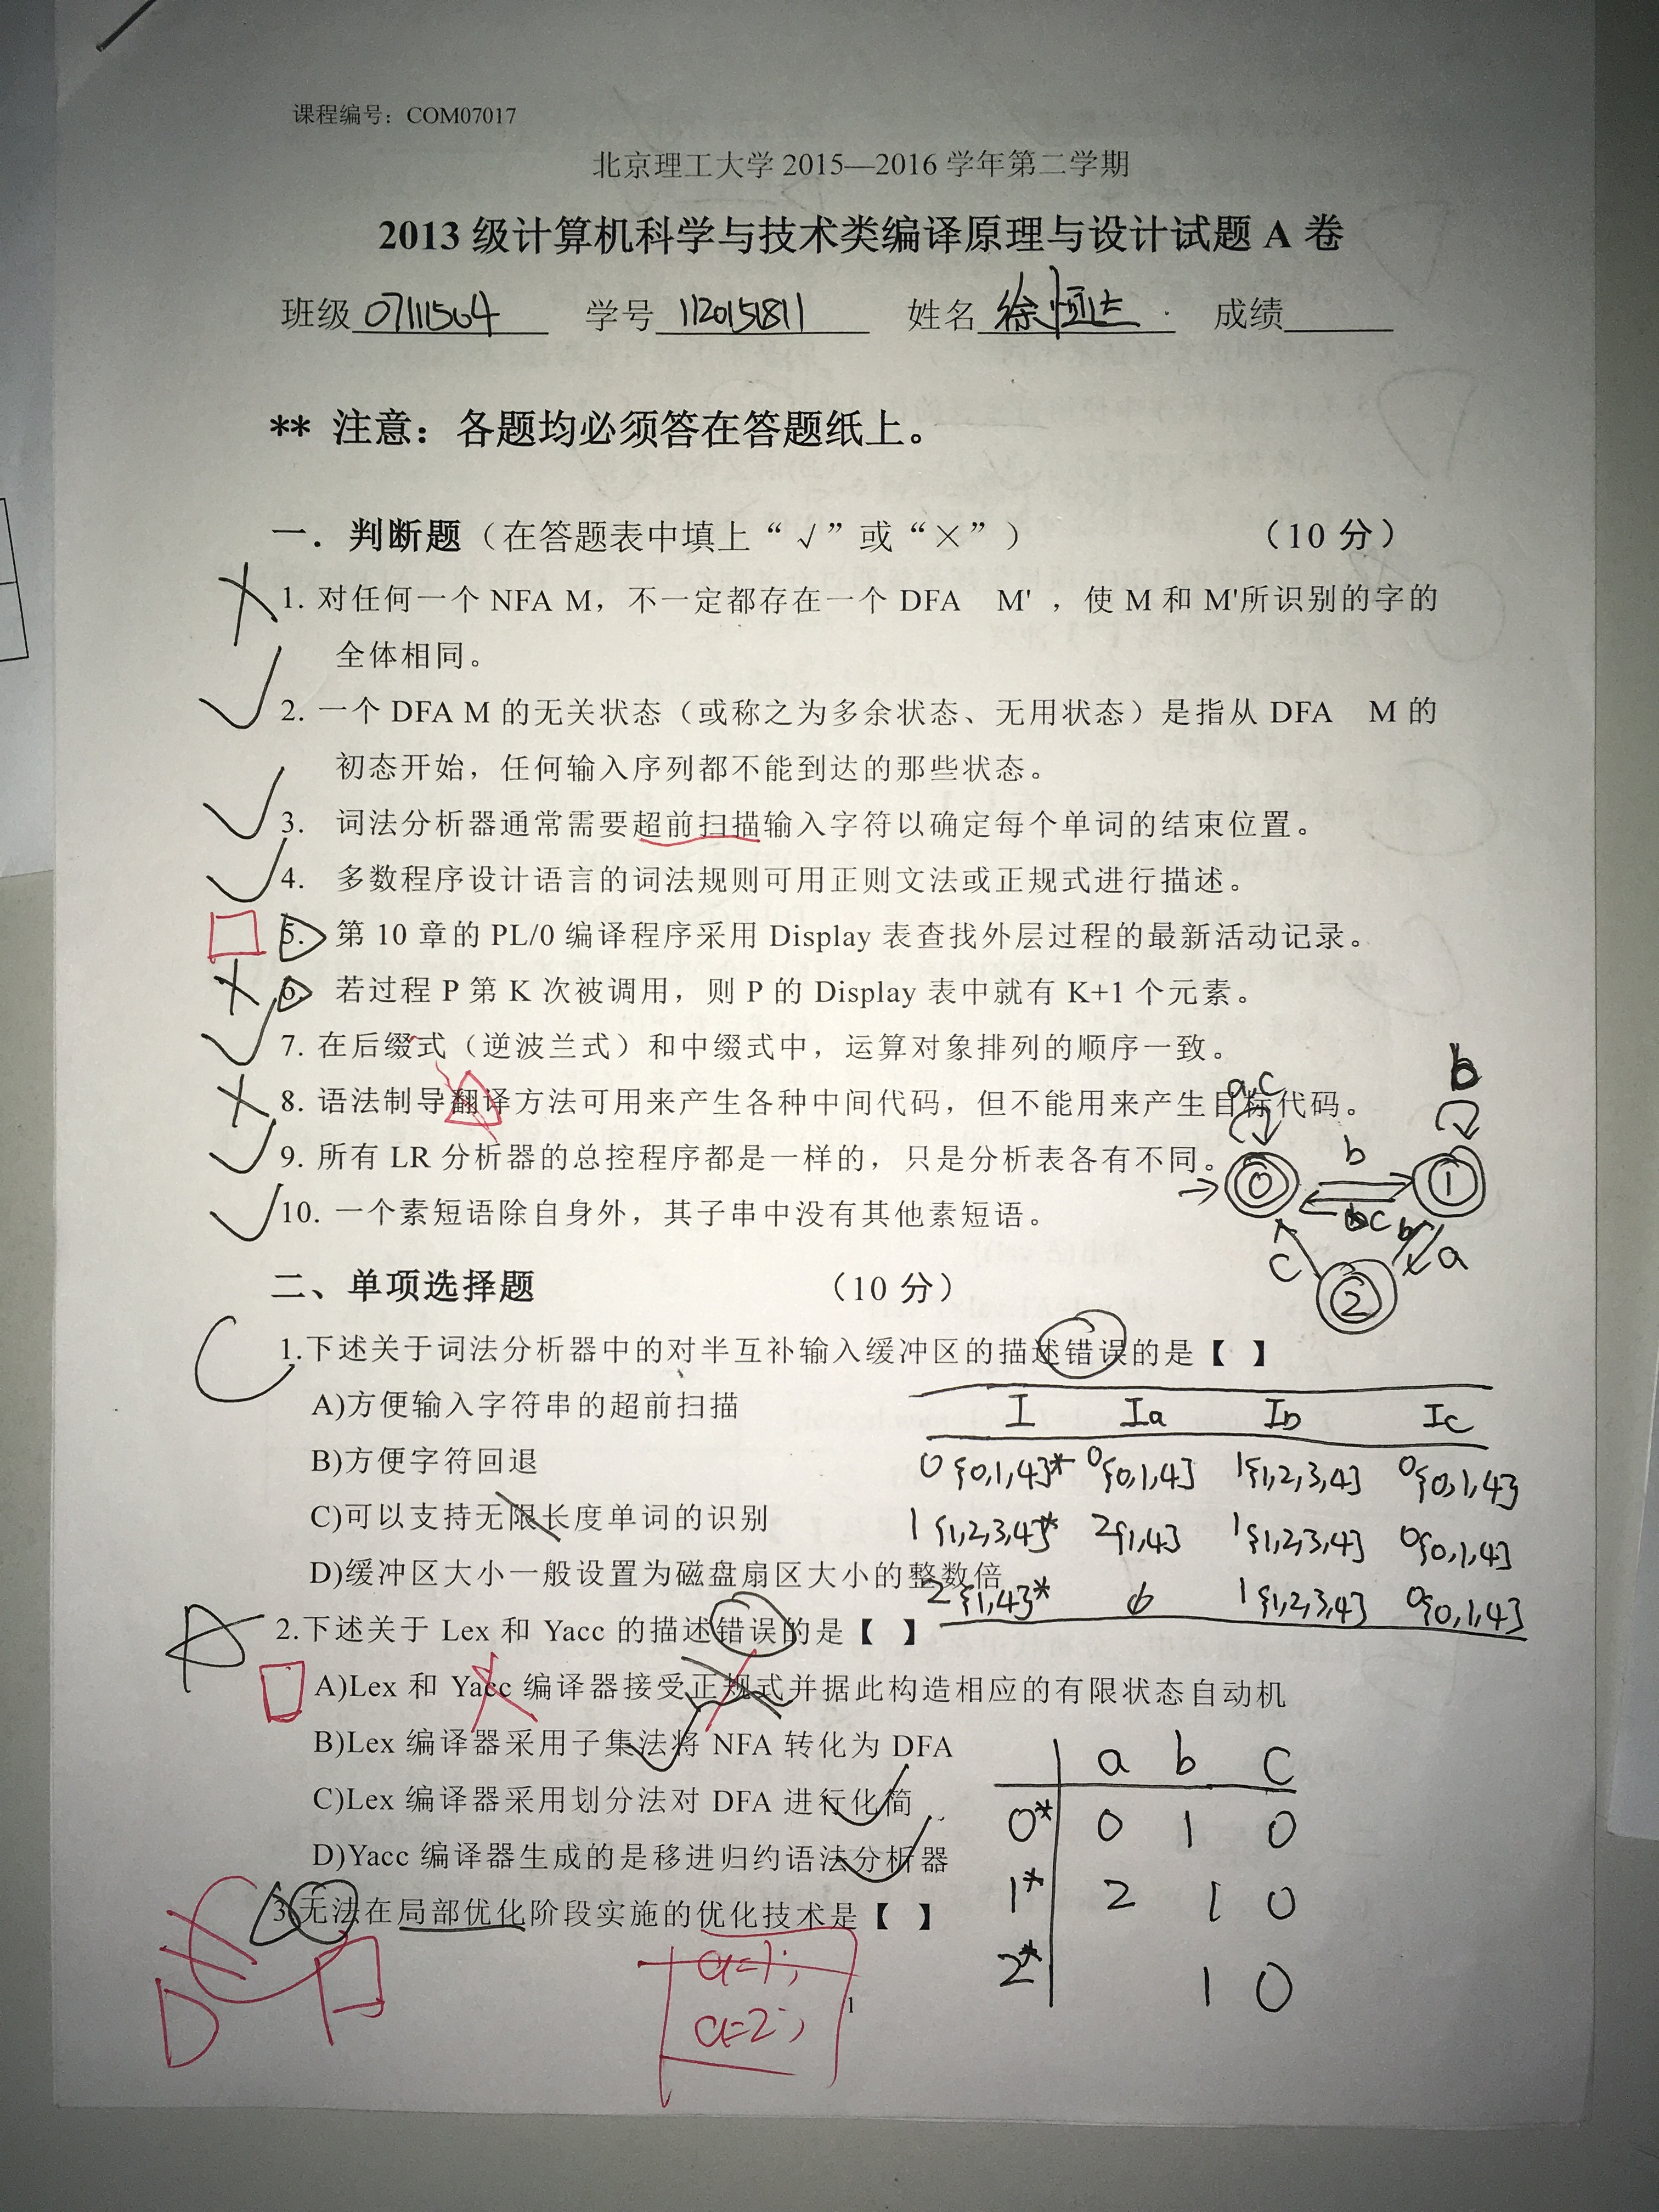 课程编号：COM07017
北京理工大学 2015—2016 学年第二学期
2013 级计算机科学与技术类编译原理与设计试题 A 卷
班级 07111564 学号 1120151811 姓名 徐恒达 成绩
** 注意：各题均必须答在答题纸上。
一．判断题（在答题表中填上“√”或“×”） （10 分）
× 1. 对任何一个 NFA M，不一定都存在一个 DFA M' ，使 M 和 M'所识别的字的
全体相同。
√ 2. 一个 DFA M 的无关状态（或称之为多余状态、无用状态）是指从 DFA M 的
初态开始，任何输入序列都不能到达的那些状态。
√ 3. 词法分析器通常需要超前扫描输入字符以确定每个单词的结束位置。
√ 4. 多数程序设计语言的词法规则可用正则文法或正规式进行描述。
5. 第 10 章的 PL/0 编译程序采用 Display 表查找外层过程的最新活动记录。
× 6. 若过程 P 第 K 次被调用，则 P 的 Display 表中就有 K+1 个元素。
√ 7. 在后缀式（逆波兰式）和中缀式中，运算对象排列的顺序一致。
× 8. 语法制导翻译方法可用来产生各种中间代码，但不能用来产生目标代码。
√ 9. 所有 LR 分析器的总控程序都是一样的，只是分析表各有不同。
√ 10. 一个素短语除自身外，其子串中没有其他素短语。
a c b
0 b 1
c b a
c 2
二、单项选择题 （10 分）
C 1.下述关于词法分析器中的对半互补输入缓冲区的描述错误的是【 】
A)方便输入字符串的超前扫描
B)方便字符回退
C)可以支持无限长度单词的识别
D)缓冲区大小一般设置为磁盘扇区大小的整数倍
I Ia Ib Ic
0 {0,1,4}* 0{0,1,4} 1{1,2,3,4} 0{0,1,4}
1 {1,2,3,4}* 2{1,4} 1{1,2,3,4} 0{0,1,4}
2 {1,4}* ϕ 1{1,2,3,4} 0{0,1,4}
A 2.下述关于 Lex 和 Yacc 的描述错误的是【 】
A)Lex 和 Yacc 编译器接受正规式并据此构造相应的有限状态自动机
B)Lex 编译器采用子集法将 NFA 转化为 DFA
C)Lex 编译器采用划分法对 DFA 进行化简
D)Yacc 编译器生成的是移进归约语法分析器
a b c
0* 0 1 0
1* 2 1 0
2* 1 0
D 3.无法在局部优化阶段实施的优化技术是【 】
a=1;
a=2;
1